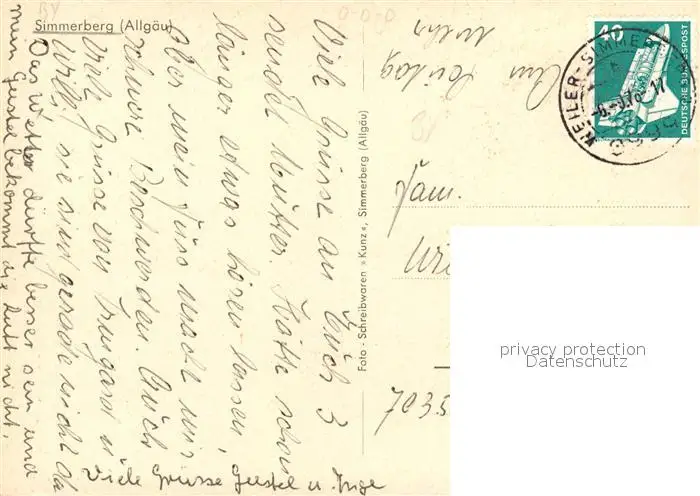 Simmerberg (Allgäu)
Am Freitag
mehr
Viele Grüsse an Euch 3
sendet Mutter. Hätte schon
länger etwas hören lassen,
aber mein Fuss macht mir
schwere Beschwerden. Auch
Viele Grüsse von Irmgard u.
Willi, sie sind gerade nicht da
Das Wetter dürfte besser sein und
mein Gustel bekommt die Luft nicht.
Viele Grüsse Gustel u. Inge
Foto: Schreibwaren »Kunz«, Simmerberg (Allgäu)
Fam.
7035
40
DEUTSCHE BUNDESPOST
WEILER-SIMMERBERG
privacy protection
Datenschutz